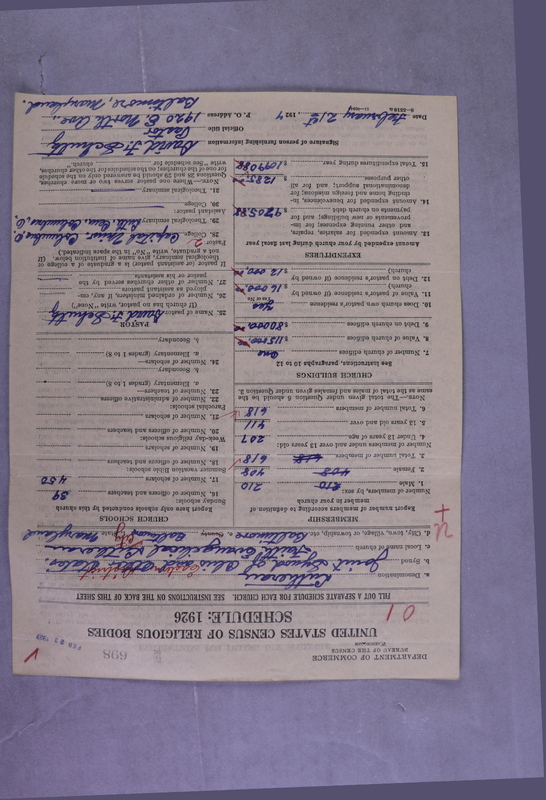 DEPARTMENT OF COMMERCE
BUREAU OF THE CENSUS
WASHINGTON
698
FEB 23 1927
UNITED STATES CENSUS OF RELIGIOUS BODIES
SCHEDULE: 1926
01
FILL OUT A SEPARATE SCHEDULE FOR EACH CHURCH. SEE INSTRUCTIONS ON THE BACK OF THIS SHEET
a. Denomination Lutheran Eastern District
Joint Synod of Ohio and other States
b. Local name of church Faith Evangelical Lutheran
d. City, town, village, or township, etc. Baltimore c. County Baltimore City State Maryland
MEMBERSHIP
Report number of members according to definition of
member in your church
Number of members, by sex:
1. Male 210 210
2. Female 408 408
3. Total number of members 618 618
4. Under 13 years of age 207
5. 13 years old and over 411
6. Total number of members 618
NOTE.—The total given under Question 6 should be the
same as the total of males and females given under Question 3.
CHURCH BUILDINGS
See instructions, paragraphs 10 to 12
7. Number of church edifices One
8. Value of church edifices $ 115000
9. Debt on church edifices $ 80000
10. Does church own pastor's residence Yes
(Yes or No)
11. Value of pastor's residence (if owned by
church) $ 16000
12. Debt on pastor's residence (if owned by
church) $ 12000
EXPENDITURES
Amount expended by your church during last fiscal year
13. Amount expended for salaries, repairs,
and other running expenses; for improvements or new buildings; and for
payments on church debt $ 9705.88
14. Amount expended for benevolences, including home and foreign missions; for
denominational support; and for all
other purposes $ 1285.
15. Total expenditures during year $ 10990.88
CHURCH SCHOOLS
Report here only schools conducted by this church
Sunday schools:
16. Number of officers and teachers 39
17. Number of scholars 450
Summer vacation Bible schools:
18. Number of officers and teachers
19. Number of scholars
Week-day religious schools:
20. Number of officers and teachers
21. Number of scholars
Parochial schools:
22. Number of administrative officers
23. Number of teachers—
a. Elementary (grades 1 to 8)
b. Secondary
24. Number of scholars—
a. Elementary (grades 1 to 8)
b. Secondary
PASTOR
25. Name of pastor David F. Schultz
(If church has no pastor, write "None")
26. Number of ordained ministers, if any, employed as assistant pastors
27. Number of other churches served by the
pastor or his assistants
If pastor or assistant pastor is a graduate of a college or
theological seminary, give name of institution below. (If
not a graduate, write "No" in the space indicated.)
Pastor:
28. College Capital Univ. Columbus O.
29. Theological seminary Luth. Sem. Columbus, O.
Assistant pastor:
30. College
31. Theological seminary
NOTE.—Where one pastor serves two or more churches,
Questions 28 and 29 should be answered only on the schedule
for one of the churches; on the schedules for the other churches,
write "See schedule for church."
Signature of person furnishing information David F. Schultz
Official title Pastor
Date February 21st 1927 P. O. Address 1920 E. North Ave.,
Baltimore, Maryland.